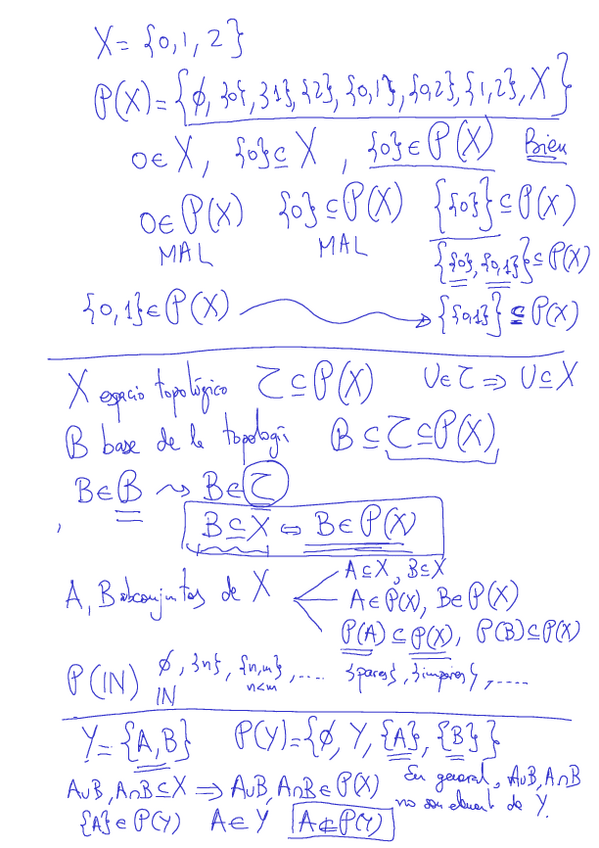 X = {0,1,2}
P(X) = {∅, {0}, {1}, {2}, {0,1}, {0,2}, {1,2}, X}
0 ∈ X, {0} ⊆ X, {0} ∈ P(X) Bien
0 ∈ P(X) {0} ⊆ P(X) {{0}} ⊆ P(X)
MAL MAL {{0}, {0,1}} ⊆ P(X)
{0,1} ∈ P(X) → {{0,1}} ⊆ P(X)
X espacio topológico τ ⊆ P(X) U ∈ τ ⇒ U ⊆ X
B base de la topologí B ⊆ τ ⊆ P(X)
B ∈ B ⇝ B ∈ τ
B ⊆ X ⇔ B ∈ P(X)
A, B subconjuntos de X
A ⊆ X, B ⊆ X
A ∈ P(X), B ∈ P(X)
P(A) ⊆ P(X), P(B) ⊆ P(X)
P(ℕ) ∅, {n}, {n,m}, .... {pares}, {impares}, .....
ℕ n<m
Y = {A,B} P(Y) = {∅, Y, {A}, {B}}
A∪B, A∩B ⊆ X ⇒ A∪B, A∩B ∈ P(X) En general, A∪B, A∩B
no son element de Y.
{A} ∈ P(Y) A ∈ Y A ∉ P(Y)